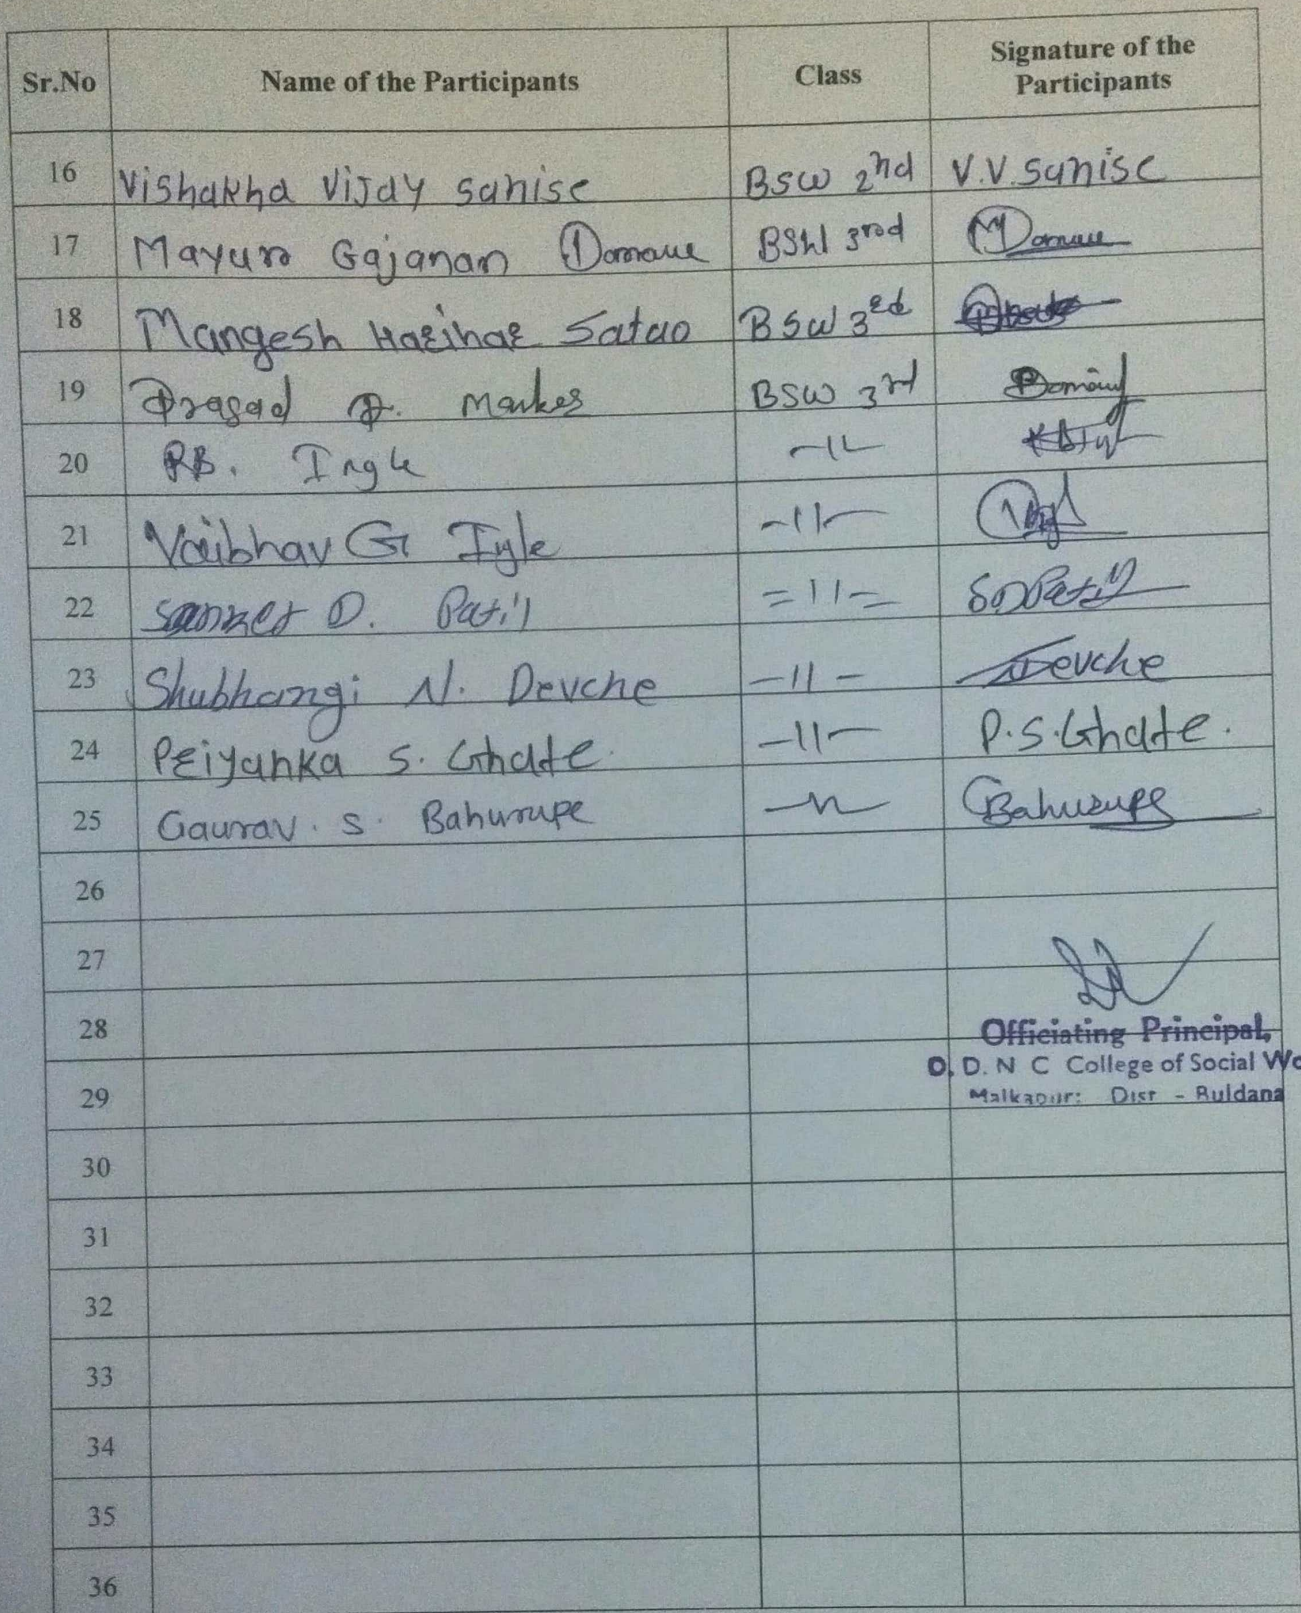 Sr.No Name of the Participants Class Signature of the Participants
16 Vishakha Vijay sanise BSW 2nd V.V.sanise
17 Mayur Gajanan Domane BSW 3rd
18 Mangesh Harihar Satao BSW 3rd
19 Prasad P. BSW 3rd
20 RB. Ingle -11-
21 Vaibhav G Ingle -11-
22 Sanket D. Patil =11= SDPatil
23 Shubhangi N. Devche -11- Devche
24 Priyanka S. Ghate. -11- P.S.Ghate.
25 Gaurav. S. Bahurupe -11- GBahurupe
26
27
28 Officiating Principal,
D. D. N C College of Social Wo
29 Malkapur: Dist - Buldana
30
31
32
33
34
35
36